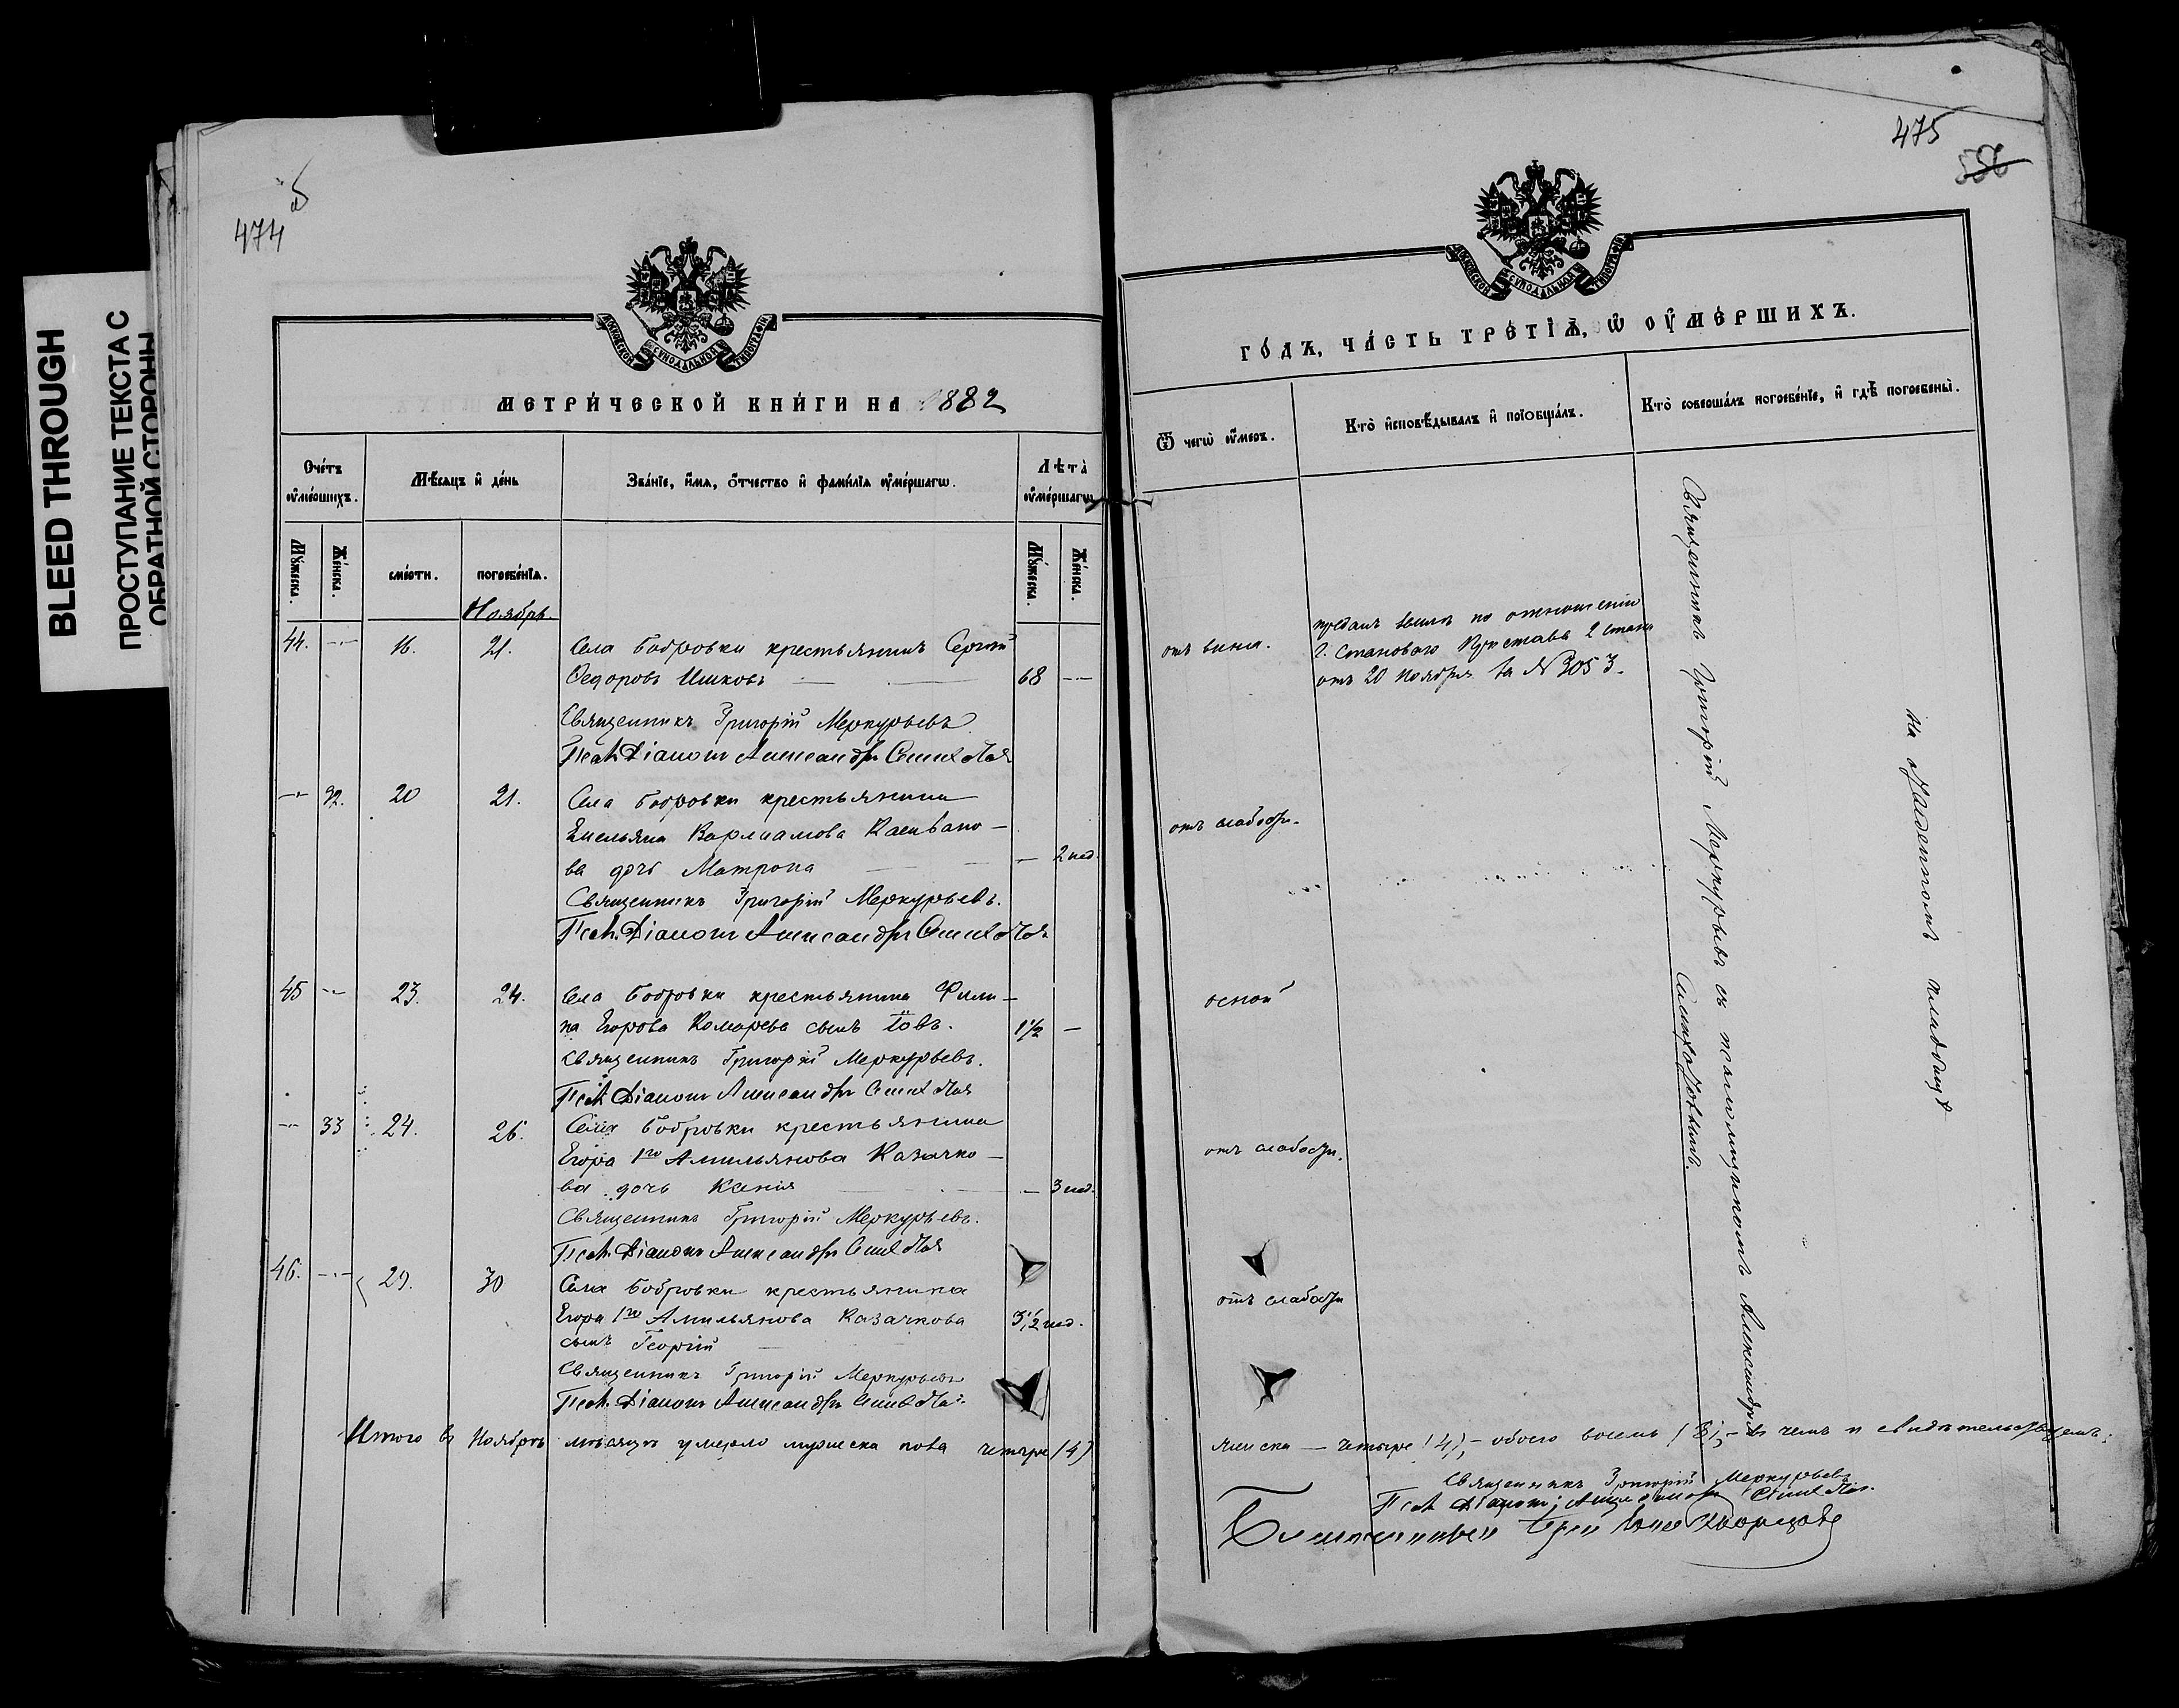 BLEED THROUGH
ПРОСТУПАНИЕ ТЕКСТА С
ОБРАТНОЙ СТОРОНЫ
474
МОСКОВСКОЙ СУНОДАЛЬНОЙ ТИПОГРАФІИ
МЕТРИ́ЧЕСКОЙ КНИ́ГИ НА 1882
Счéтъ ᲂу҆мéршихъ.
Мѣ́сѧцъ и҆ дéнь
Звáнїе, и҆́мѧ, ѻ҆́тчество и҆ фами́лїѧ ᲂу҆мéршагѡ.
Лѣ̀та ᲂу҆мéршагѡ
Мꙋ́жеска.
Жéнска.
смéрти.
погребéнїѧ.
Мꙋ́жеска.
Жéнска.
Ноябрь.
44. — 16. 21. Села Бобровки крестьянинъ Сергій
Ѳедоровъ Ишковъ — 68 —
Священникъ Григорій Меркурьевъ
Псал. Діаконъ Александръ
— 32. 20 21. Села Бобровки крестьянина
Емельяна Варлаамова Казивано-
ва дочь Матрона — 2 нед.
Священникъ Григорій Меркурьевъ.
Псал. Діаконъ Александръ
45 — 23. 24. Села Бобровки крестьянина Фили-
па Егорова Комарева сынъ Іовъ. 1½ —
Священникъ Григорій Меркурьевъ.
Псал. Діаконъ Александръ
— 33 24. 26. Села Бобровки крестьянина
Егора 1го Амильянова Казачко-
ва дочь Ксенія — 3 нед.
Священникъ Григорій Меркурьевъ.
Псал. Діаконъ Александръ
46. — 29. 30 Села Бобровки крестьянина
Егора 1го Амильянова Казачкова 3½ нед.
сынъ Георгій
Священникъ Григорій Меркурьевъ
Псал. Діаконъ Александръ
Итого въ Ноябрѣ мѣсяцѣ умерло мужеска пола четыре (4)
475
556
МОСКОВСКОЙ СУНОДАЛЬНОЙ ТИПОГРАФІИ
ГО́ДЪ, ЧА́СТЬ ТРЕ́ТІѦ, Ѡ҆ ОУ҆МЕ́РШИХЪ.
Ѿ чегѡ̀ ᲂу҆́меръ.
Ктò и҆сповѣ́дывалъ и҆ прїѡбщáлъ.
Ктò совершáлъ погребéнїе, и҆ гдѣ̀ погребены̀.
отъ вина.
преданъ землѣ по отношенію
г. Становаго Пристава 2 стана
отъ 20 Ноября за № 3053.
отъ слабости.
оспой
отъ слабости.
отъ слабости
Священникъ Григорій Меркурьевъ съ псаломщикомъ Александромъ
на отведенномъ кладбищѣ
женска — четыре (4), — обоего восемь (8), — въ чемъ и свидѣтельствуемъ:
Священникъ Григорій Меркурьевъ
Псал. Діаконъ Александръ